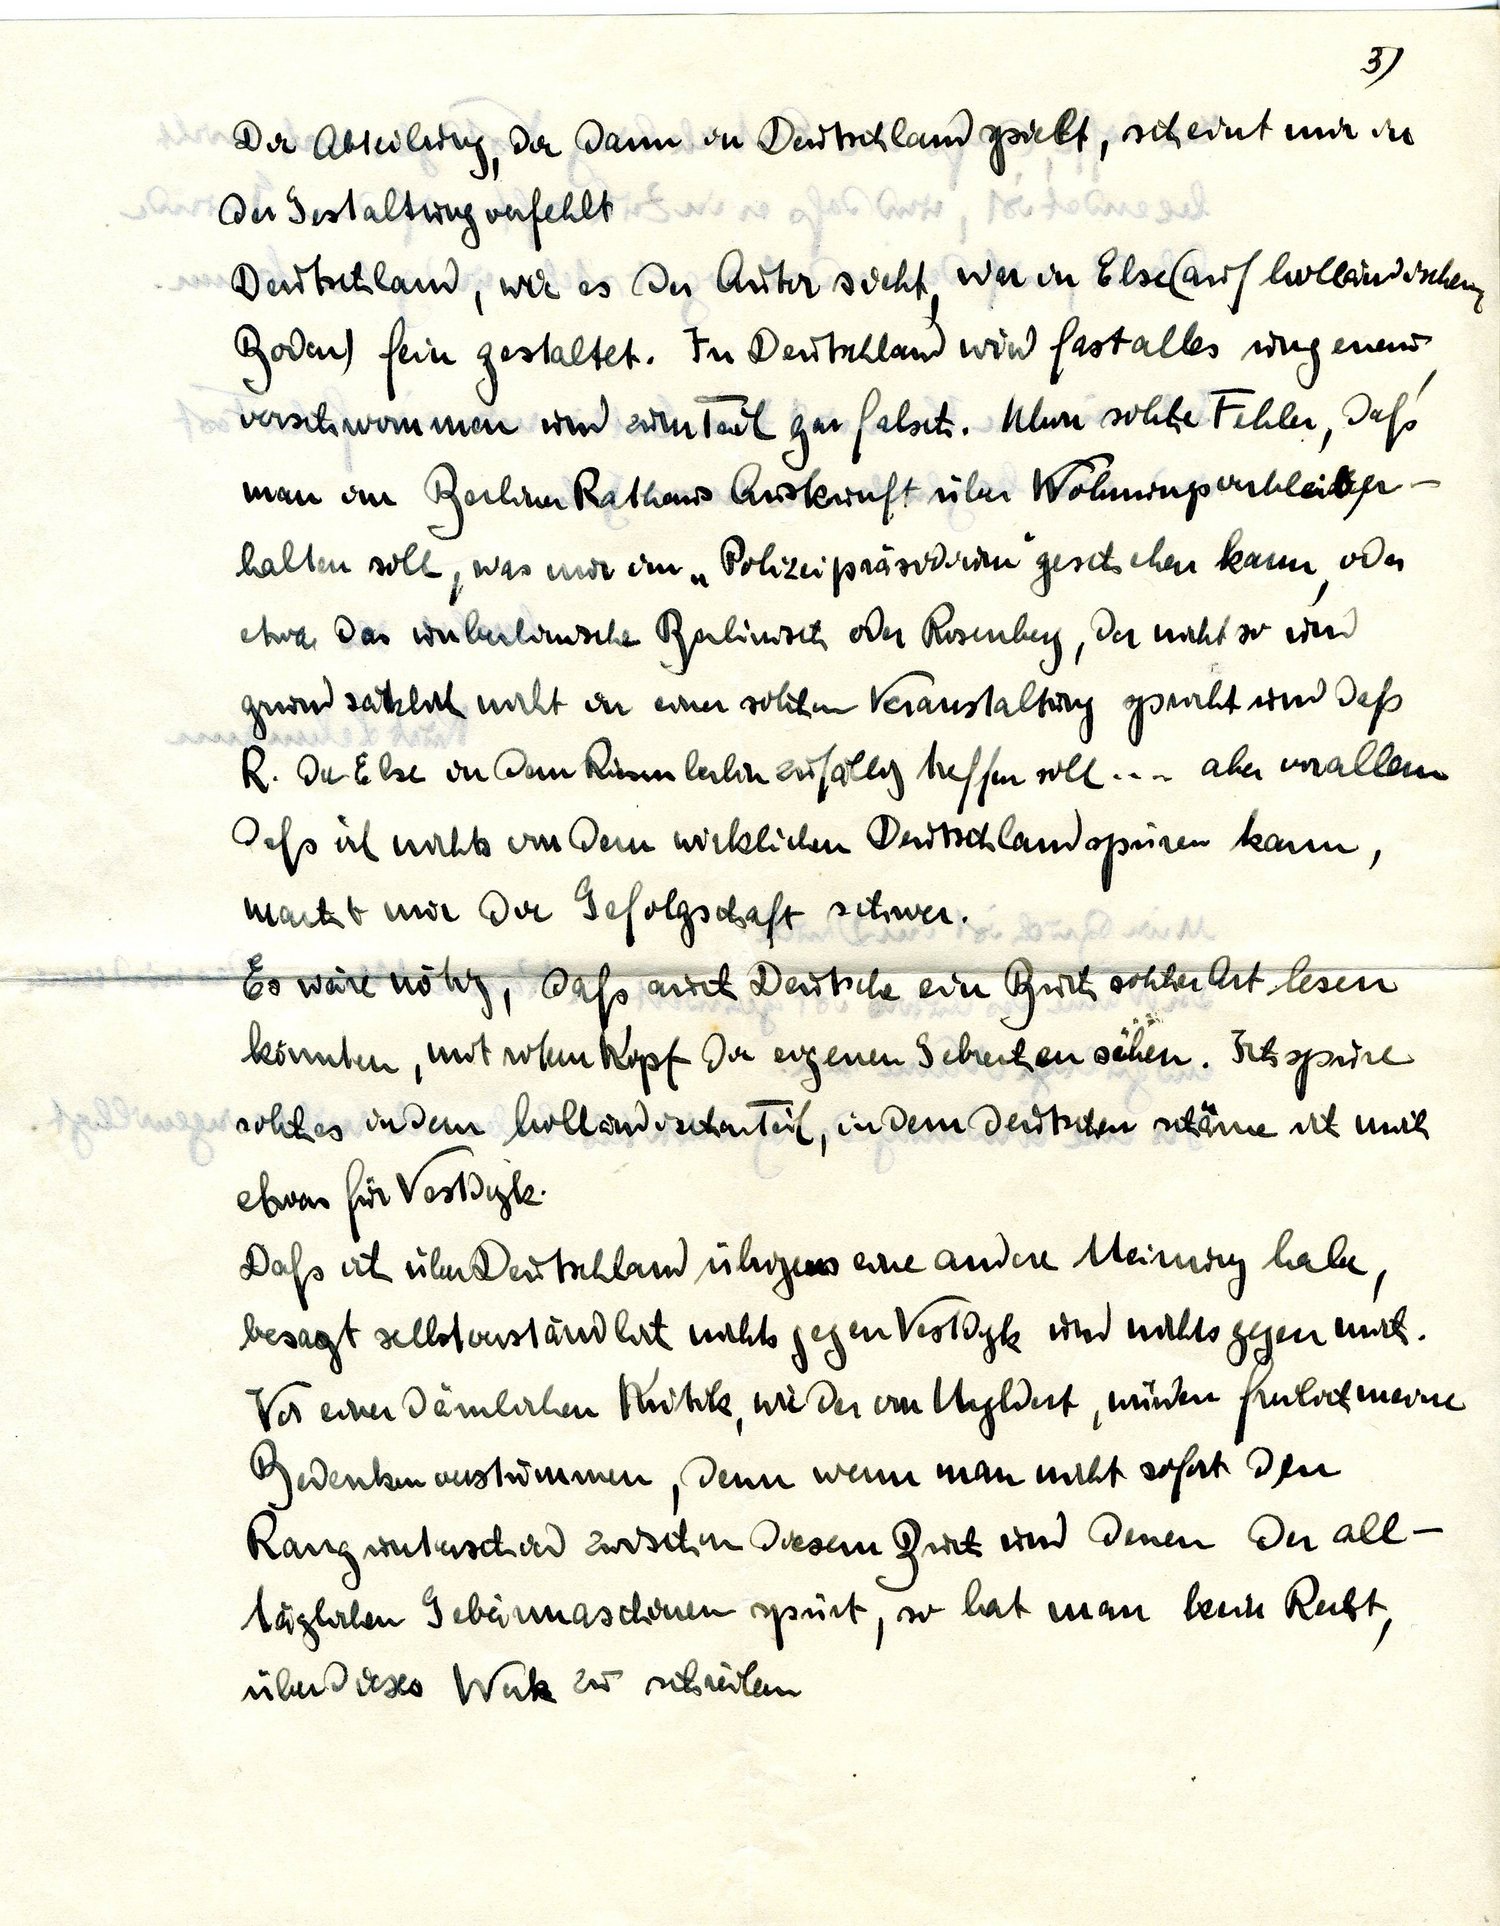 3)
Die Abteilung, die dann in Deutschland spielt, scheint mir in
der Gestaltung verfehlt
Deutschland, wie es der Autor sieht, war in Else (auf holländischem
Boden) fein gestaltet. In Deutschland wird fast alles ungenau,
verschwommen und zum Teil gar falsch. Nun solche Fehler, dafs
man im Berliner Rathaus Auskunft über Wohnung verbleib er-
halten soll, was nur im „Polizeipräsidium" geschehen kann, oder
etwa das unberlinische Berlinisch oder Rosenberg, der nicht so und
grundsätzlich nicht in einer solchen Veranstaltung spricht und dafs
R. die Else in dem Riesenberlin zufällig treffen soll .... aber vor allem
dafs ich nichts von dem wirklichen Deutschland spüren kann,
macht mir die Gefolgschaft schwer.
Es wäre nötig, dafs auch Deutsche ein Buch solcher Art lesen
könnten, mit rotem Kopf die eigenen Gebrechen sähen. Ich spüre
solches in dem holländischen Teil, in dem deutschen schäme ich mich
etwas für Vestdijk.
Dafs ich über Deutschland übrigens eine andere Meinung habe,
besagt selbstverständlich nichts gegen Vestdijk und nichts gegen mich.
Vor einer dämlichen Kritik, wie der von, würden freilich meine
Bedenken verstummen, denn wenn man nicht sofort den
Rangunterschied zwischen diesem Buch und denen der all-
täglichen Gebärmaschinen spürt, so hat man kein Recht,
über dieses Werk zu schreiben